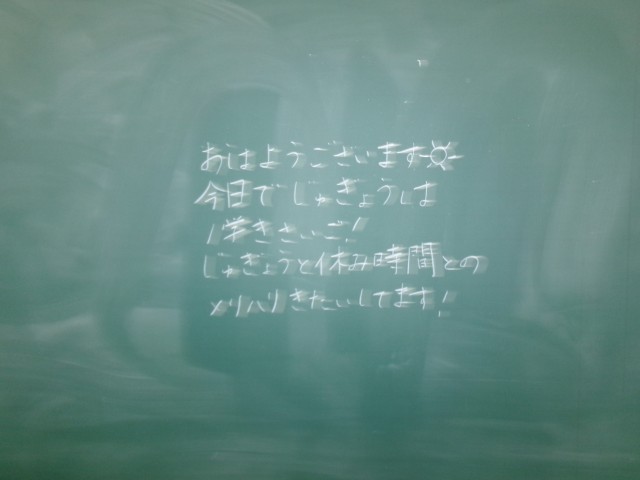 おはようございます☼
今日でじゅぎょうは
1学きさいご!
じゅぎょうと休み時間との
メリハリきたいしてます!